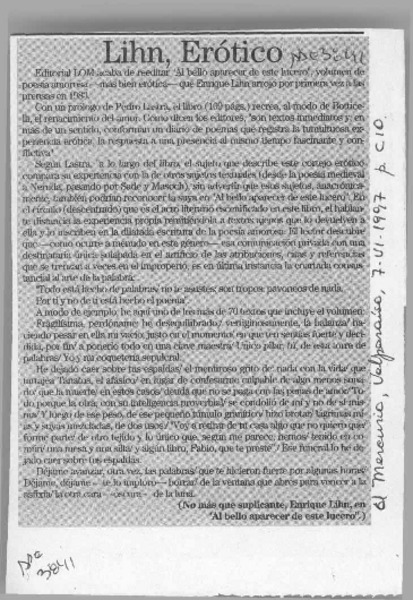 Lihn, Erótico
Editorial LOM acaba de reeditar "Al bello aparecer de este lucero", volumen de
poesía amorosa —mas bien erótica— que Enrique Lihn arrojó por primera vez a las
prensas en 1983.
Con un prólogo de Pedro Lastra, el libro (100 págs.) recrea, al modo de Bottice-
lli, el renacimiento del amor. Como dicen los editores, "son textos inmediatos y, en
más de un sentido, conforman un diario de poemas que registra la tumultuosa ex-
periencia erótica, la respuesta a una presencia al mismo tiempo fascinante y con-
flictiva".
Según Lastra, "a lo largo del libro, el sujeto que describe este cortejo erótico
compara su experiencia con la de otros sujetos textuales (desde la poesía medieval
a Neruda, pasando por Sade y Masoch), sin advertir que esos sujetos, anacrónica-
mente, también podrían reconocer la suya en "Al bello aparecer de este lucero". En
el circuito descentrado que es el acto literario escenificado en este libro, el hablan-
te distancia la experiencia propia remitiéndola a textos ajenos que lo devuelven a
ella y lo inscriben en la dilatada escritura de la poesía amorosa. El lector descubre
que —como ocurre a menudo en este género— esa comunicación privada con una
destinataria única solapada en el artificio de las atribuciones, citas y referencias
que se truecan a veces en el improperio, es en última instancia la coartada consus-
tancial al arte de la palabra".
"Todo está hecho de palabras, no te asustes, son tropos pavoneos de nada.
Por ti y no de ti está hecho el poema".
A modo de ejemplo, he aquí uno de los más de 70 textos que incluye el volumen:
Fragilísima, perdóname/ he desequilibrado,/ vertiginosamente, la balanza/ ha-
ciendo pesar en ella mi vacío, justo en el momento/ en que ten sentías fuerte y deci-
dida, por fin/ a ponerlo todo en una clave maestra/ Único pilar, tú, de esta torre de
palabras/ Yo y mi coquetería sepulcral.
He dejado caer sobre tus espaldas/ el mentiroso grito de/ nada con la vida/ que
ultraja Tánatos, el afásico/ en lugar de confesarme culpable de algo menos sono-
ro/ que la muerte, en estos casos/ deuda que no se paga con las penas de amor/ To-
do porque la otra, con su inteligencia proverbial/ se condolió de mí y no de sí mis-
ma/ Y luego de ese peso, de ese pequeño túmulo granítico/ hizo brotar/ lágrimas mí-
as y suyas mezcladas, de dos usos:/ "Voy a retirar de tu casa algo que no quiero que/
forme parte de otro tejido y lo único que, según me parece, hemos/ tenido en co-
mún/ una mesa y una silla/ y algún libro, Pablo, que te presté"/ Ese funeral lo he de-
jado caer sobre tus espaldas.
Déjame avanzar, otra vez, las palabras/ que te hicieron fuerte, por algunas horas/
Déjame, déjame —te lo imploro— borrar/ de la ventana que abres para vencer a la
asfixia/ la otra cara —oscura— de la luna.
(No más que suplicante, Enrique Lihn, en
"Al bello aparecer de este lucero".)
El Mercurio, Valparaíso, 7-VI-1997 p. C10
3841